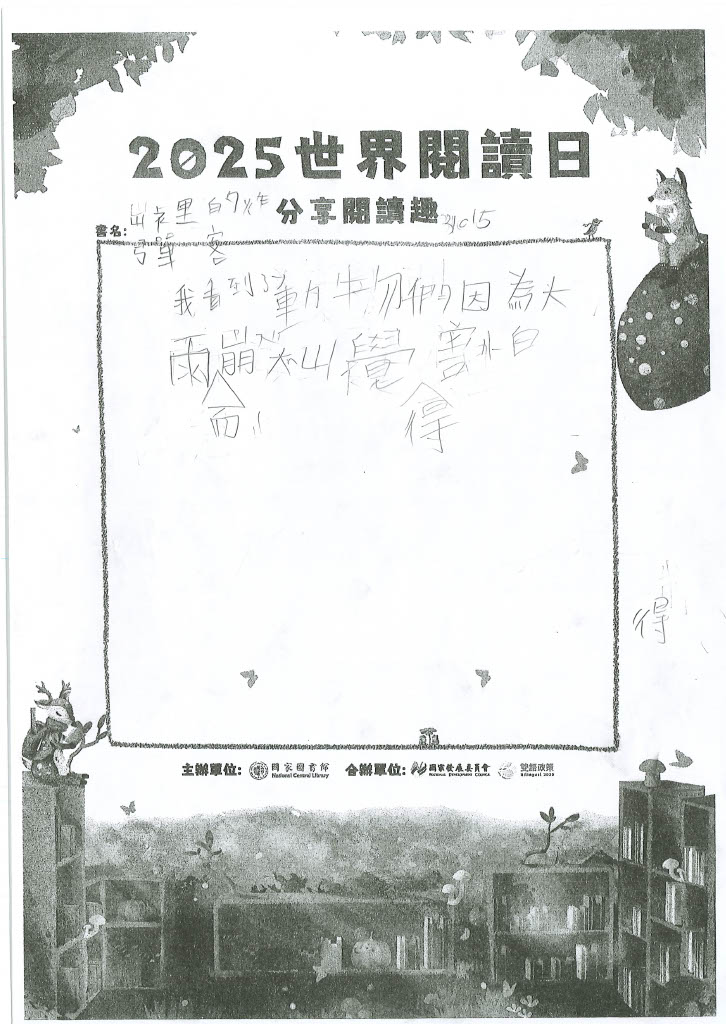 2025世界閱讀日
分享閱讀趣
書名:
山裡的炸
彈客
我看到了動生物們因為大
雨崩太山覺害怕
而
得
得
主辦單位: 國家圖書館 National Central Library 合辦單位: 國家發展委員會 NATIONAL DEVELOPMENT COUNCIL 雙語政策 Bilingual 2030